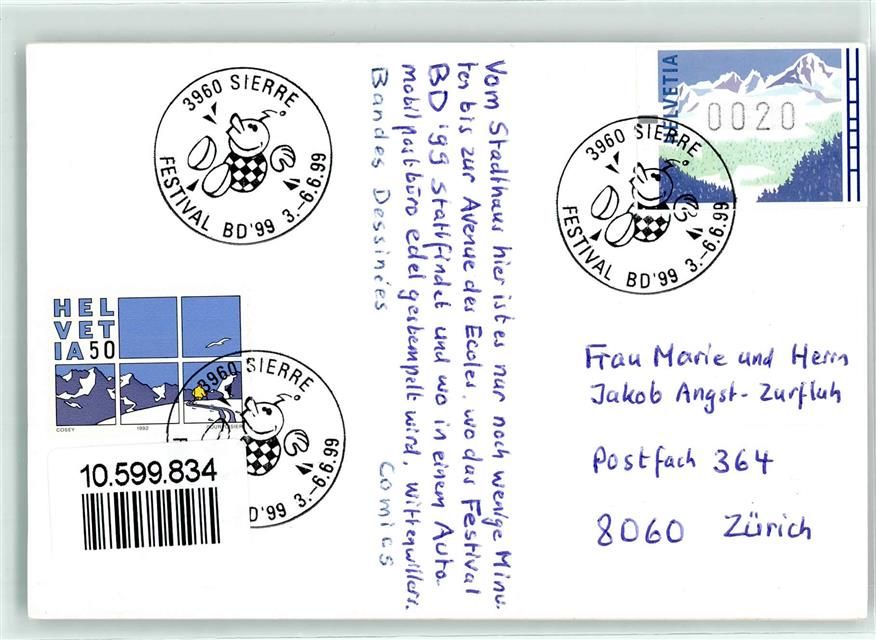 3960 SIERRE
FESTIVAL BD'99 3.-6.6.99
HELVETIA
0020
3960 SIERRE
FESTIVAL BD'99 3.-6.6.99
Vom Stadthaus hier ist es nur noch wenige Minu-
ten bis zur Avenue des Ecoles, wo das Festival
BD '99 stattfindet und wo in einem Auto-
mobilpostbüro edel gestempelt wird,
Bandes Dessinées Comics
HEL
VET
IA50
COSEY 1992
3960 SIERRE
D'99 3.-6.6.99
10.599.834
Frau Marie und Herrn
Jakob Angst-Zurfluh
Postfach 364
8060 Zürich